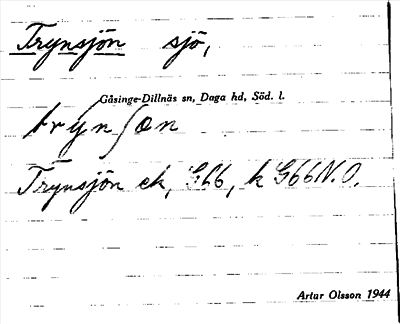 Trynsjön sjö,
Gåsinge-Dillnäs sn, Daga hd, Söd. l.
trynʃøn
Trynsjön ek, G66, k G66N.O.
Artur Olsson 1944